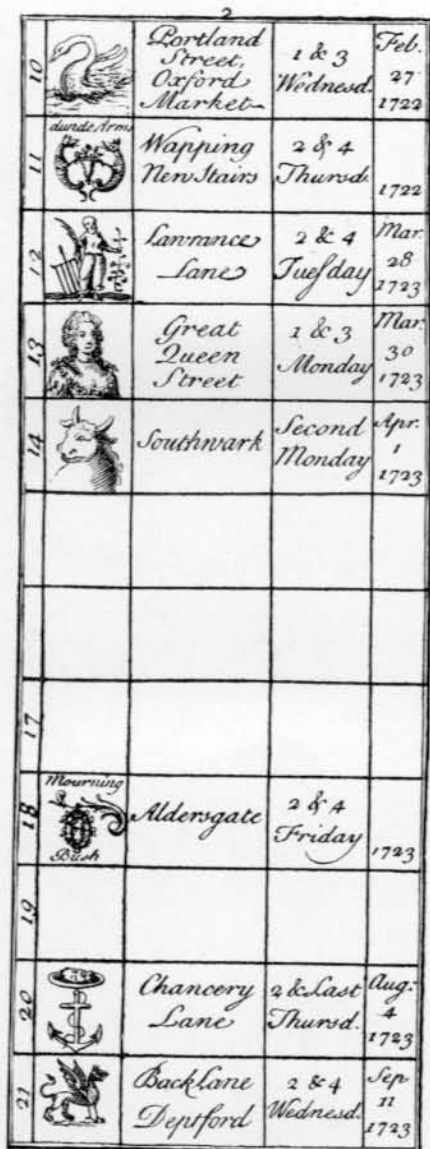 2
10
Portland
Street,
Oxford
Market
1 & 3
Wednesd.
Feb.
27
1722
11
dunds Arms
Wapping
New Stairs
2 & 4
Thursd.
1722
12
Lawrance
Lane
2 & 4
Tuesday
Mar.
28
1723
13
Great
Queen
Street
1 & 3
Monday
Mar.
30
1723
14
Southwark
Second
Monday
Apr.
1
1723
17
18
Mourning
Bush
Aldersgate
2 & 4
Friday
1723
19
20
Chancery
Lane
2 & Last
Thursd.
Aug.
4
1723
21
Back Lane
Deptford
2 & 4
Wednesd.
Sep
11
1723